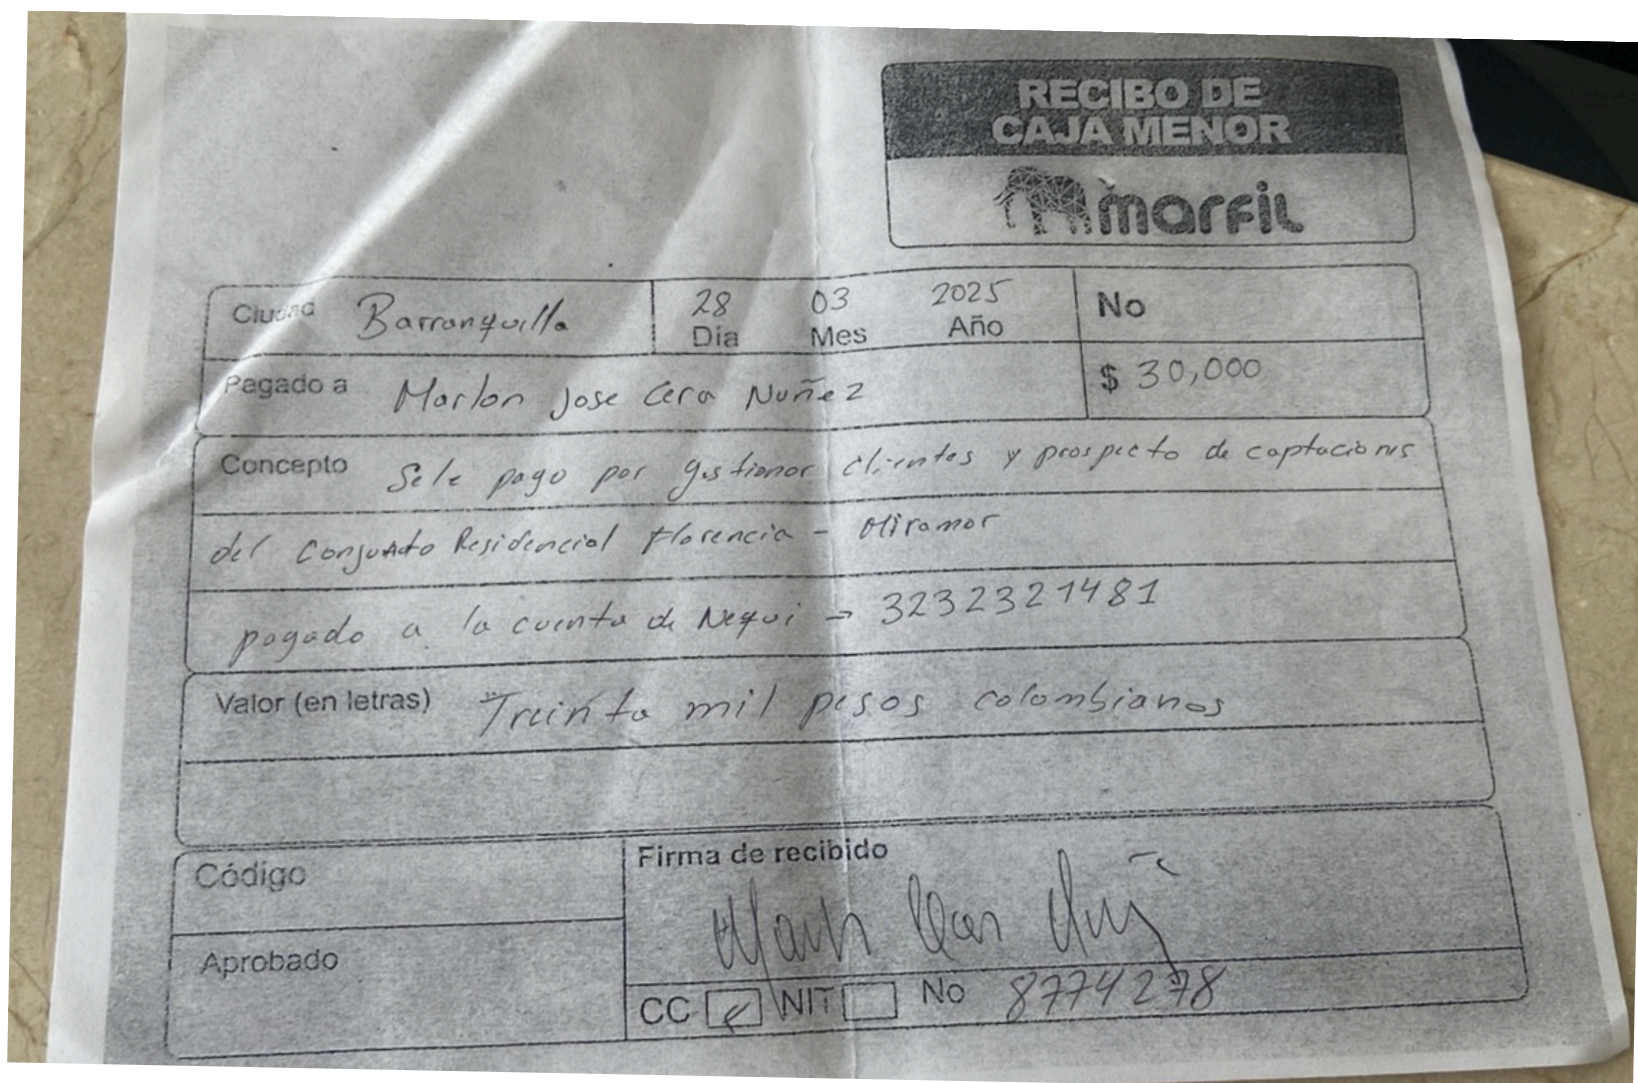 RECIBO DE
CAJA MENOR
marfil
Ciudad Barranquilla 28 03 2025 No
Dia Mes Año
Pagado a Marlon Jose Cera Nuñez $ 30,000
Concepto Se le pago por gestionar clientes y prospecto de captaciones
del Conjunto Residencial Florencia - Miramar
pagado a la cuenta de Nequi → 3232321481
Valor (en letras) Treinta mil pesos colombianos
Código
Firma de recibido
Aprobado
CC NIT No 8774278